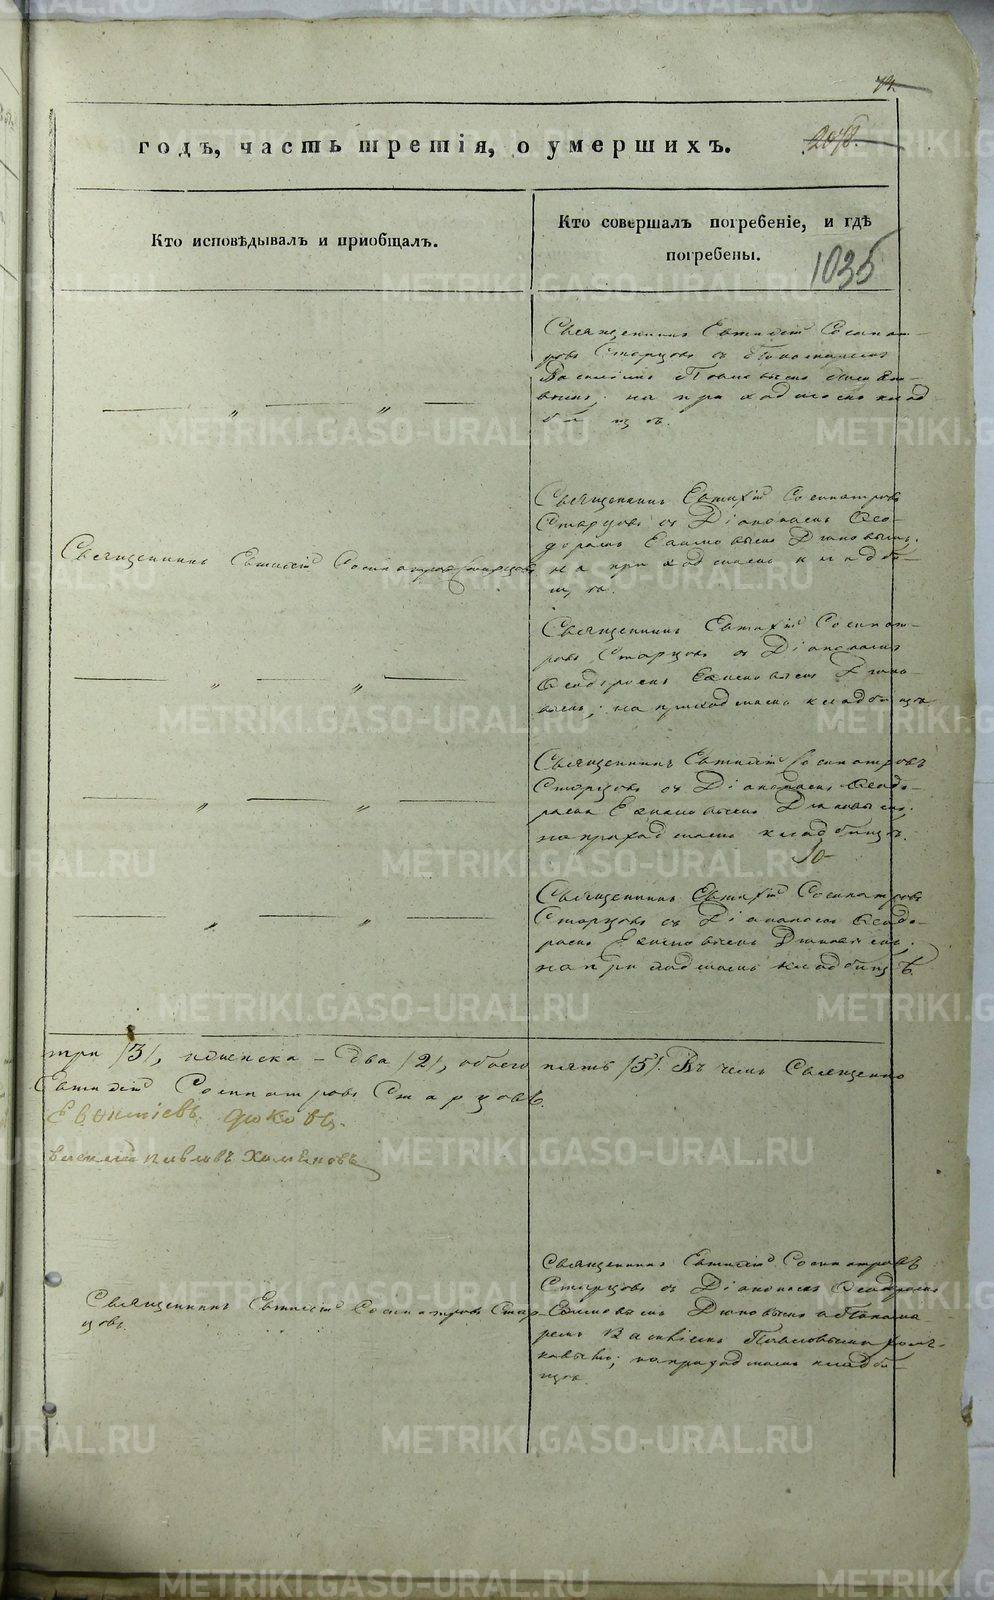 74.
годъ, часть третія, о умершихъ.
2078.
Кто исповѣдывалъ и пріобщалъ.
Кто совершалъ погребеніе, и гдѣ
погребены.
1035
Священникъ Евтихій Сосипат-
ровъ Старцовъ съ Пономаремъ
Василіемъ Павловымъ
вымъ; на приходскомъ клад-
бищѣ.
Священникъ Евтихій Сосипатровъ Старцовъ
Священникъ Евтихій Сосипатровъ
Старцовъ съ Діакономъ Ѳео-
доромъ Дюковымъ;
на приходскомъ кладби-
щѣ.
Священникъ Евтихій Сосипат-
ровъ Старцовъ съ Діакономъ
Ѳеодоромъ Дюко-
вымъ; на приходскомъ кладбищѣ
Священникъ Евтихій Сосипатровъ
Старцовъ съ Діакономъ Ѳеодо-
ромъ Дюковымъ;
на приходскомъ кладбищѣ.
Священникъ Евтихій Сосипатровъ
Старцовъ съ Діакономъ Ѳеодо-
ромъ Дюковымъ;
на приходскомъ кладбищѣ.
три /3/, женска – два /2/, обоего пять /5/. Въ чемъ Священно
Евтихій Сосипатровъ Старцовъ.
Дюковъ.
Василій Павловъ
Священникъ Евтихій Сосипатровъ Стар-
цовъ.
Священникъ Евтихій Сосипатровъ
Старцовъ съ Діакономъ Ѳеодоромъ
Дюковымъ и Понома-
ремъ Василіемъ Павловымъ
на приходскомъ кладби-
щѣ.
METRIKI.GASO-URAL.RU